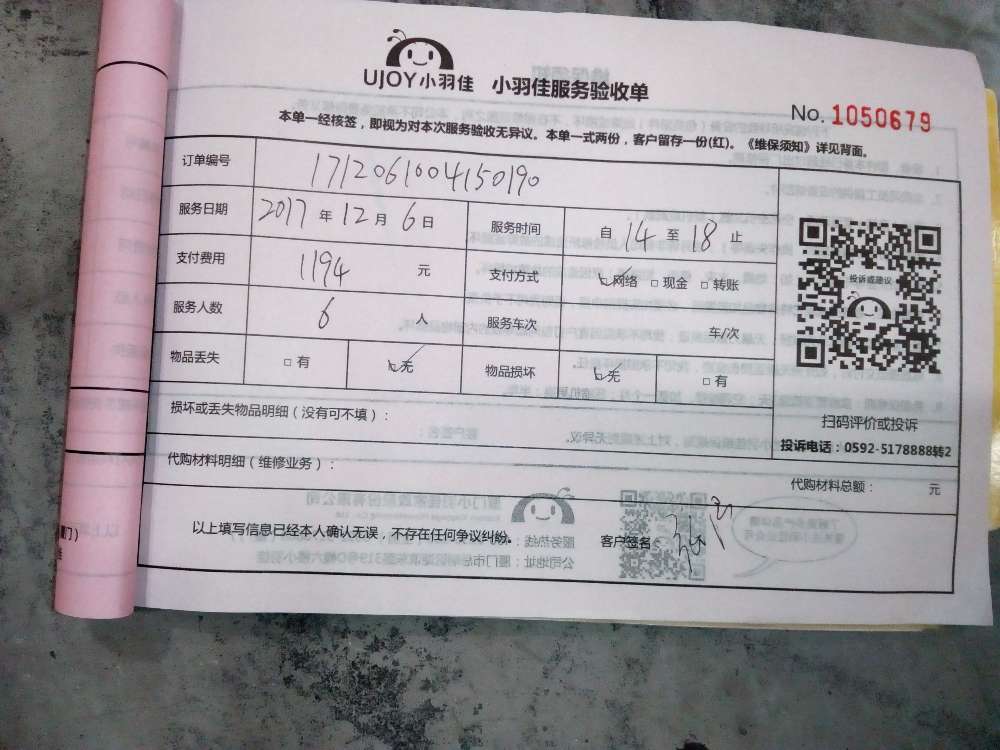 UJOY小羽佳 小羽佳服务验收单
No. 1050679
本单一经核签，即视为对本次服务验收无异议。本单一式两份，客户留存一份(红)。《维保须知》详见背面。
订单编号 1712061004150190
服务日期 2017 年 12 月 6 日 服务时间 自 14 至 18 止
支付费用 1194 元 支付方式 ☑网络 □现金 □转账
服务人数 6 人 服务车次 车/次
物品丢失 □有 ☑无 物品损坏 ☑无 □有
投诉或建议
扫码评价或投诉
投诉电话：0592-5178888转2
损坏或丢失物品明细（没有可不填）：
代购材料明细（维修业务）：
代购材料总额： 元
以上填写信息已经本人确认无误，不存在任何争议纠纷。 客户签名：